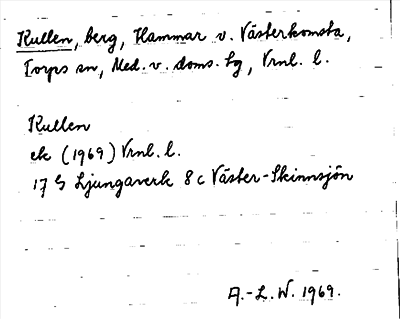 Kullen, berg, Hammar v. Västerkomsta,
Torps sn, Med. v. doms. tg, Vrnl. l.
Kullen
ek (1969) Vrnl. l.
17 G Ljungaverk 8 c Väster-Skinnsjön
A.-L. W. 1969.